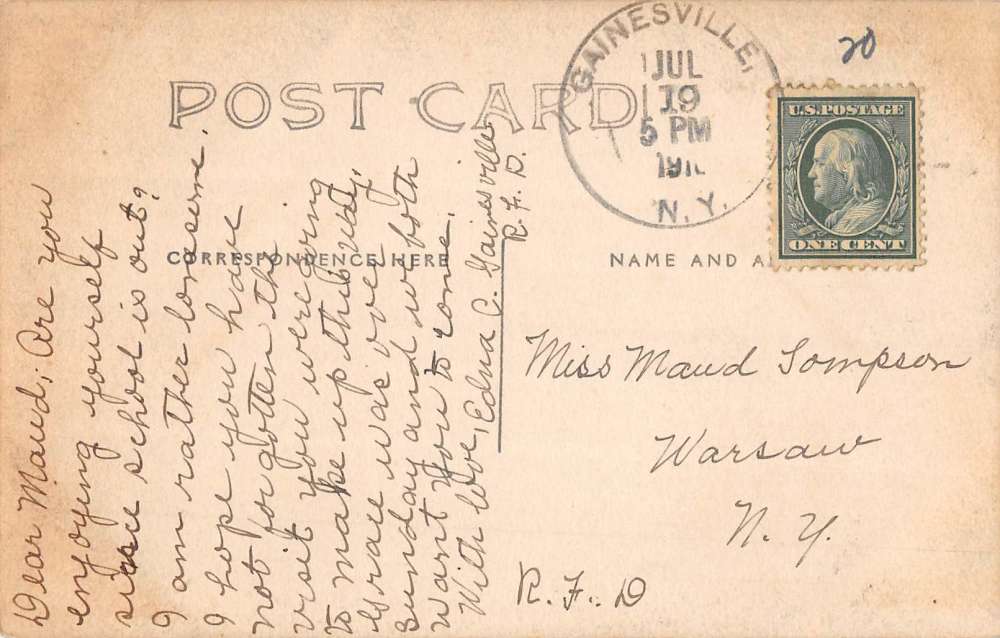 POST CARD
CORRESPONDENCE HERE
NAME AND A
GAINESVILLE,
JUL
19
5 PM
191
N.Y.
20
U.S. POSTAGE
ONE CENT
Dear Maud; Are you
enjoying yourself
since school is out?
I am rather lonesome.
I hope you have
not forgotten the
visit you were going
to make up this way,
Grace was over
Sunday and we both
want you to come.
With love, Edna C. Gainesville
R. F. D.
Miss Maud Tompson
Warsaw
N. Y.
R. F. D